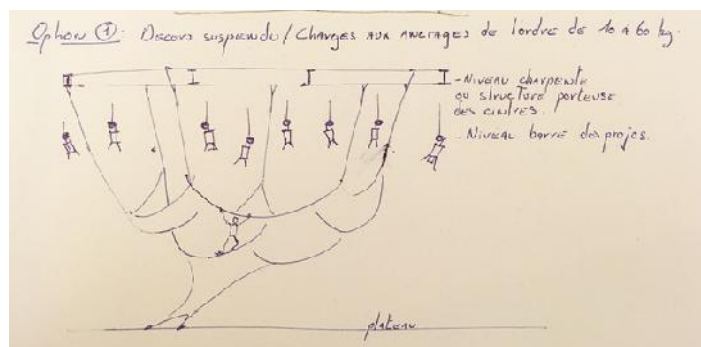 Option ①: Decors suspendu / Charges aux ancrages de l'ordre de 10 à 60 kg.
- Niveau charpente
ou structure porteuse
des cintres.
- Niveau barre des projos.
plateau